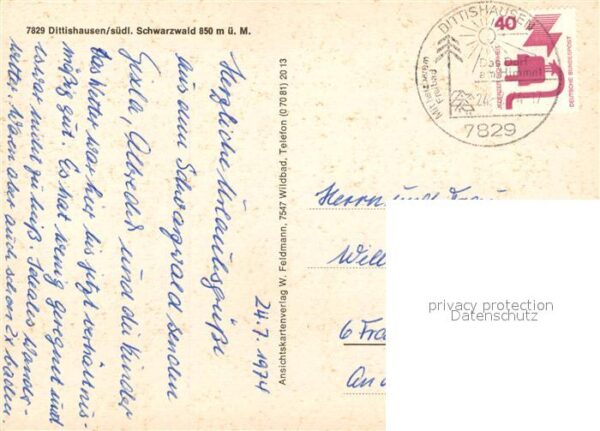 7829 Dittishausen/südl. Schwarzwald 850 m ü. M.
Herzliche Urlaubsgrüße
aus dem Schwarzwald senden
Gisela, Albrecht und die Kinder
Das Wetter war hier bis jetzt verhältnis-
mäßig gut. Es hat wenig geregnet und
ist war nicht zu heiß. Ideales Wander-
wetter. Waren aber auch schon 2x baden.
24.7.1974
Ansichtskartenverlag W. Feldmann, 7547 Wildbad, Telefon (0 70 81) 20 13
DITTISHAUSEN
Das Dorf
7829
40
DEUTSCHE BUNDESPOST
Herrn und Frau
Will
6 Fra
An d
privacy protection
Datenschutz